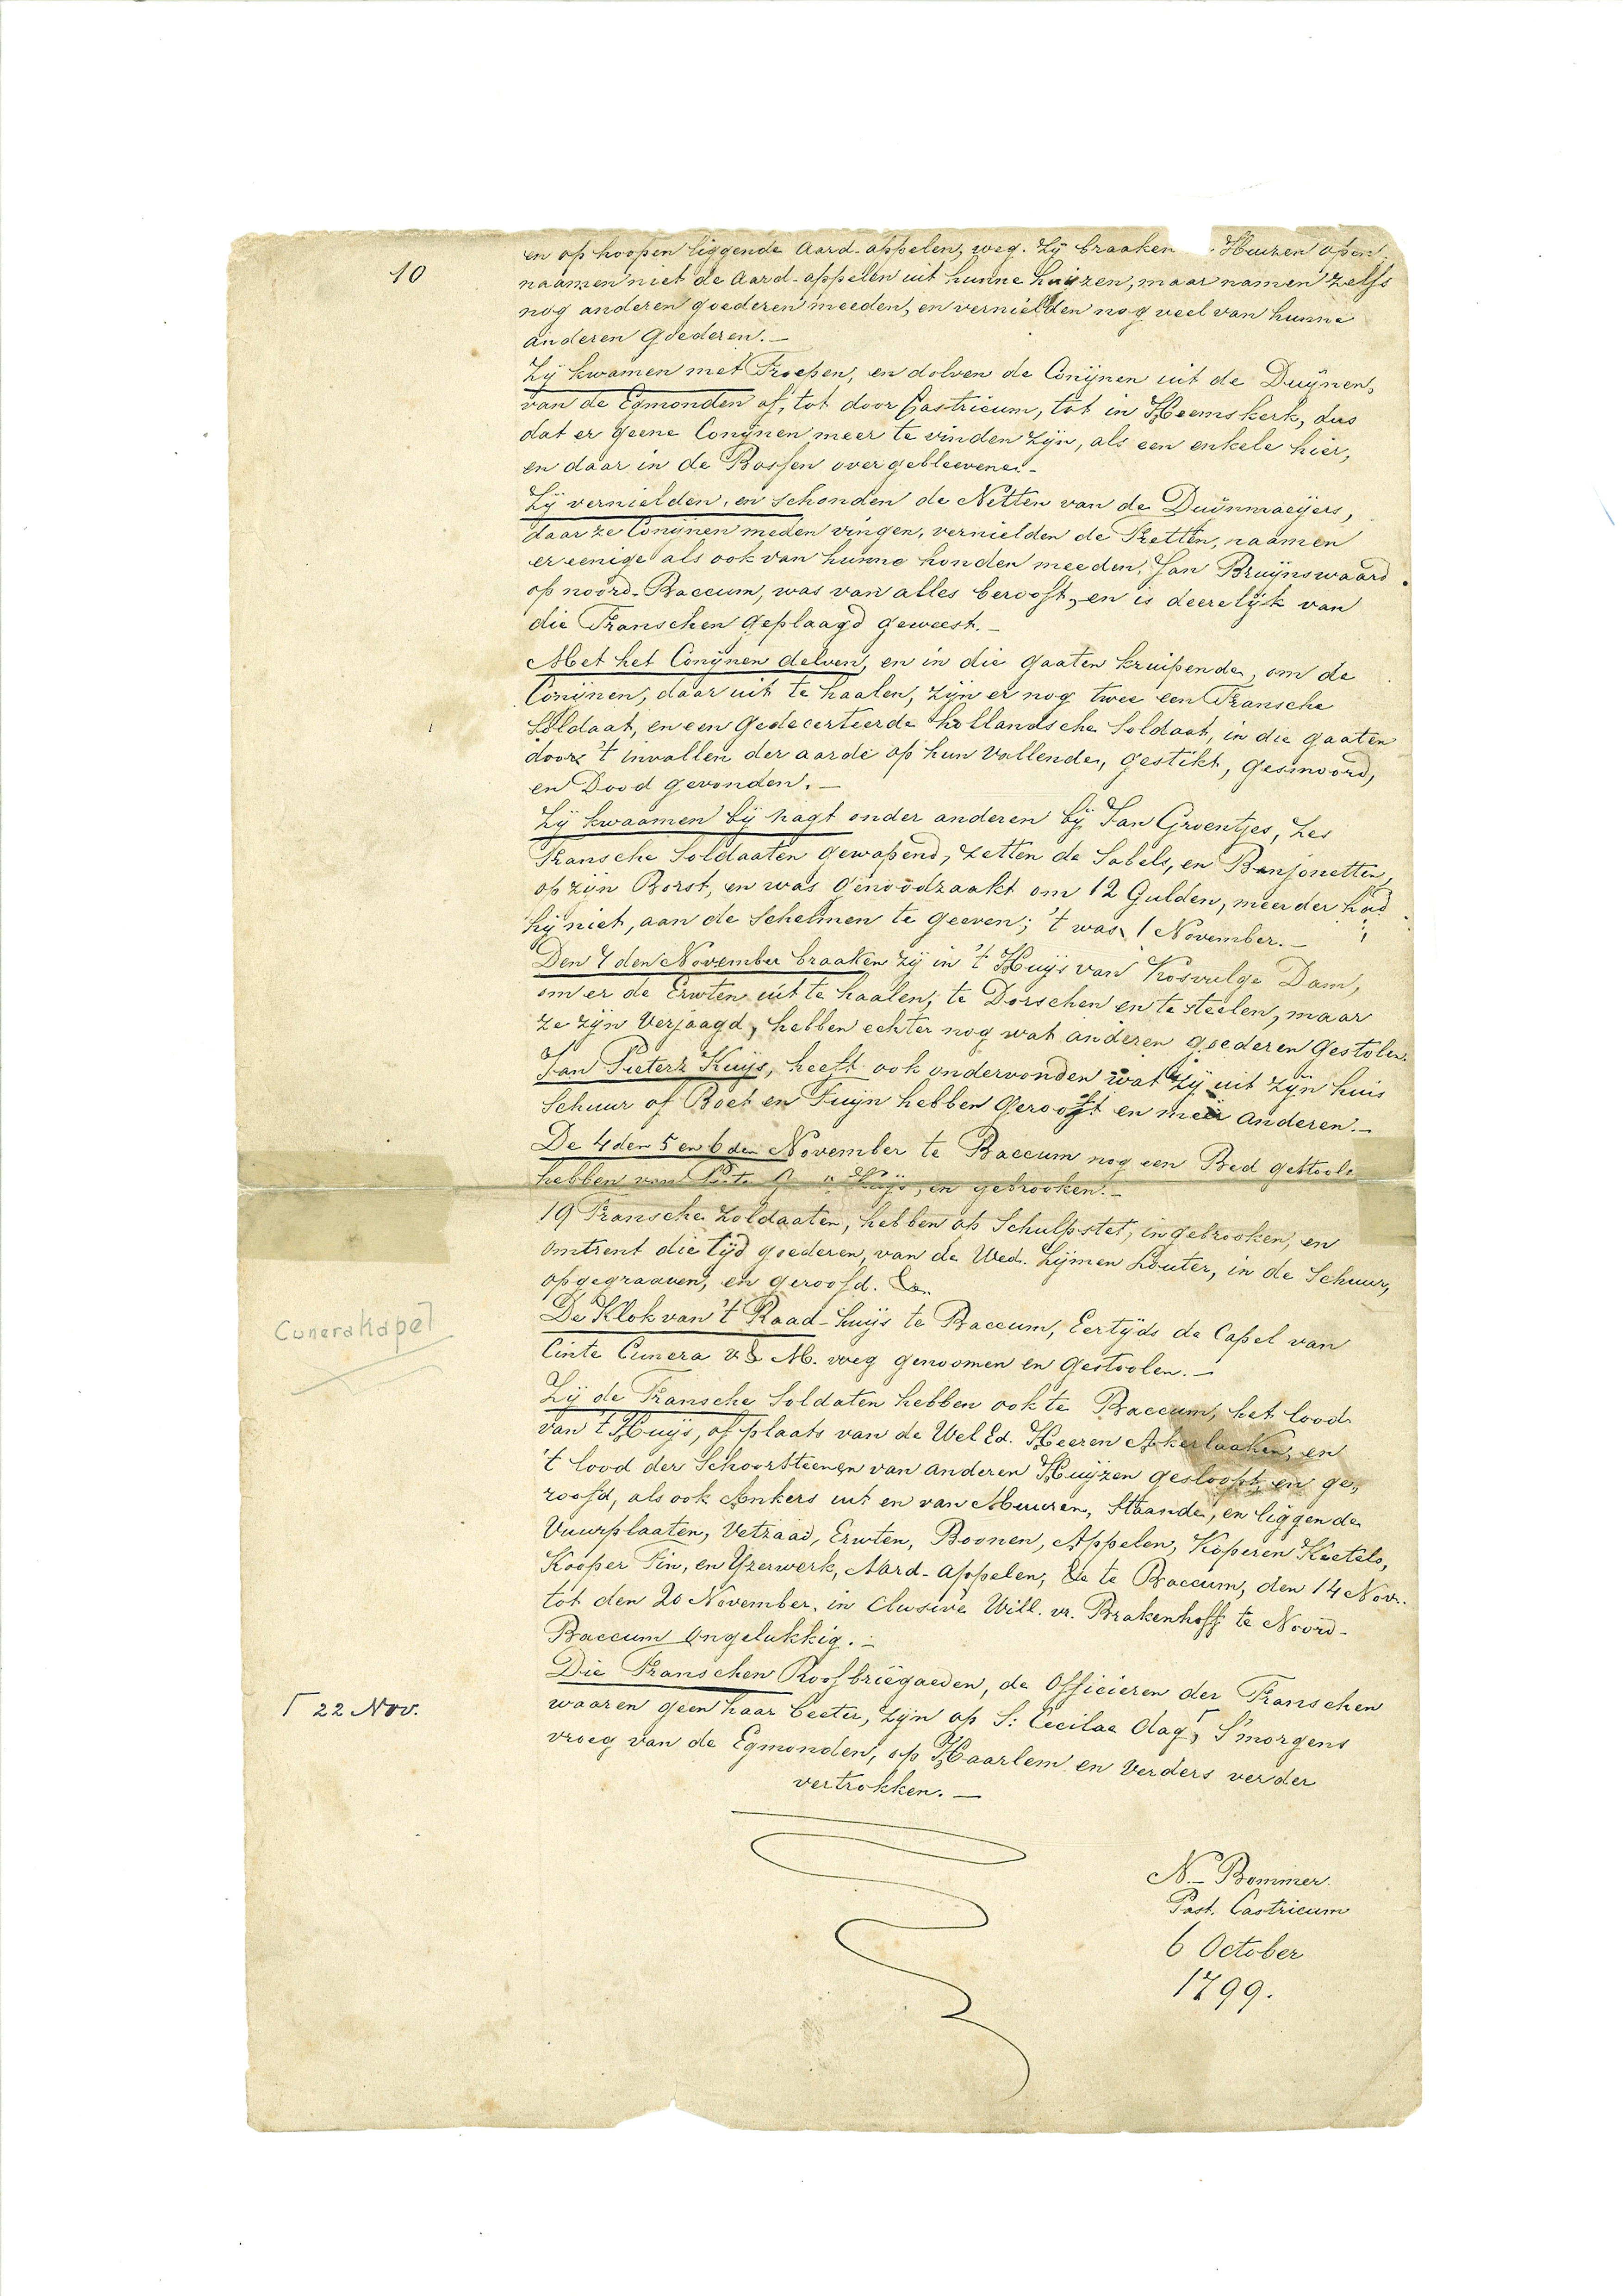 10
en op hoopen liggende Aard-appelen, weg. Zÿ braaken Huizen open,
naamen niet de Aard-appelen uit hunne huyzen, maar namen zelfs
nog anderen goederen meeden, en vernielden nog veel van hunne
anderen goederen.—
Zÿ kwamen met Troepen, en dolven de Conÿnen uit de Duÿnen,
van de Egmonden af, tot door Castricum, tot in Heemskerk, dus
dat er geene Conÿnen meer te vinden zÿn, als een enkele hier,
en daar in de Bossen overgebleevene.-
Zÿ vernielden, en schonden de Netten van de Duinmaeÿers,
daar ze Conÿnen meden vingen, vernielden de Fretten, naamen
er eenige als ook van hunne honden meeden. Jan Bruÿnswaard
op noord-Baccum, was van alles berooft, en is deerelÿk van
die Franschen geplaagd geweest.—
Met het Conÿnen delven, en in die gaaten kruipende, om de
Conÿnen, daar uit te haalen, zÿn er nog twee een Fransche
Soldaat, en een Gedecerteerde hollandsche Soldaat, in die gaaten
door 't invallen der aarde op hun vallende, gestikt, gesmoord,
en Dood gevonden.—
Zÿ kwaamen bÿ nagt onder anderen bÿ Jan Groentjes, zes
Fransche Soldaaten gewapend, zetten de Sabels, en Banjonetten,
op zÿn Borst, en was genoodzaakt om 12 Gulden, meer der had
hÿ niet, aan de Schelmen te geeven; 't was 1 November.—
Den 4den November braaken zÿ in 't Huÿs van Dam,
om er de Erwten uit te haalen, te Dorschen en te steelen, maar
ze zÿn Verjaagd, hebben echter nog wat anderen goederen gestolen.
Jan Pieterz Kuÿs, heeft ook ondervonden wat zÿ uit zÿn huis
Schuur of Boet en Tuÿn hebben gerooft en meer anderen.—
De 4den 5 en 6den November te Baccum nog een Bed gestoole
hebben van en gebrooken.—
19 Fransche zoldaaten, hebben op Schulpstet, ingebrooken, en
omtrent die tÿd goederen, van de Wed. Zÿmen Louter, in de Schuur,
opgegraaven, en geroofd. &a.
De Klok van 't Raad-huÿs te Baccum, Eertÿds de Capel van
Cinte Cunera v & M. weg genoomen en gestoolen.—
Cunerakapel
Zÿ de Fransche Soldaten hebben ook te Baccum, het lood
van 't Huÿs, of plaats van de Wel Ed. Heeren Akerlaaken, en
't lood der Schoorsteenen van anderen Huÿzen gesloopt, en ge„
roofd, als ook Ankers uit en van Muuren, Staande, en liggende
Vuurplaaten, Vetzaad, Erwten, Boonen, Appelen, Koperen Keetels,
Kooper Tin, en Yzerwerk, Aard-appelen, &a te Baccum, den 14 Nov.
tot den 20 November. in Clusive Will. vr. Brakenhoff te Noord-
Baccum Ongelukkig.—
Die Franschen Roofbriegaeden, de Officieren der Franschen
waaren geen haar beeter, zÿn op S: Ceciliae dag, S'morgens
┌ 22 Nov.
vroeg van de Egmonden, op Haarlem en verders verder
vertrokken.—
N.— Bommer.
Past. Castricum
6 October
1799.